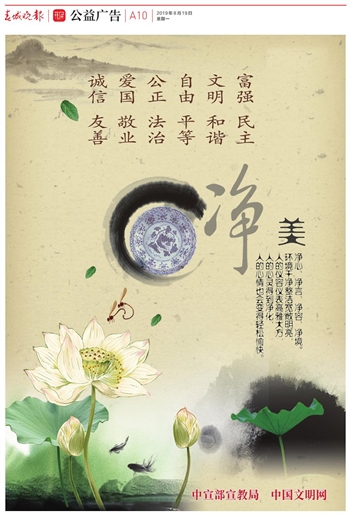 春城晚报 公益广告 A10 2019年8月19日
星期一
富强 民主
文明 和谐
自由 平等
公正 法治
爱国 敬业
诚信 友善
净
美
净心、净言、净容、净境。
环境干净整洁宽敞明亮，
人的仪容仪表高雅大方，
人的心灵得到净化，
人的心情也会变得轻松愉快。
中宣部宣教局 中国文明网